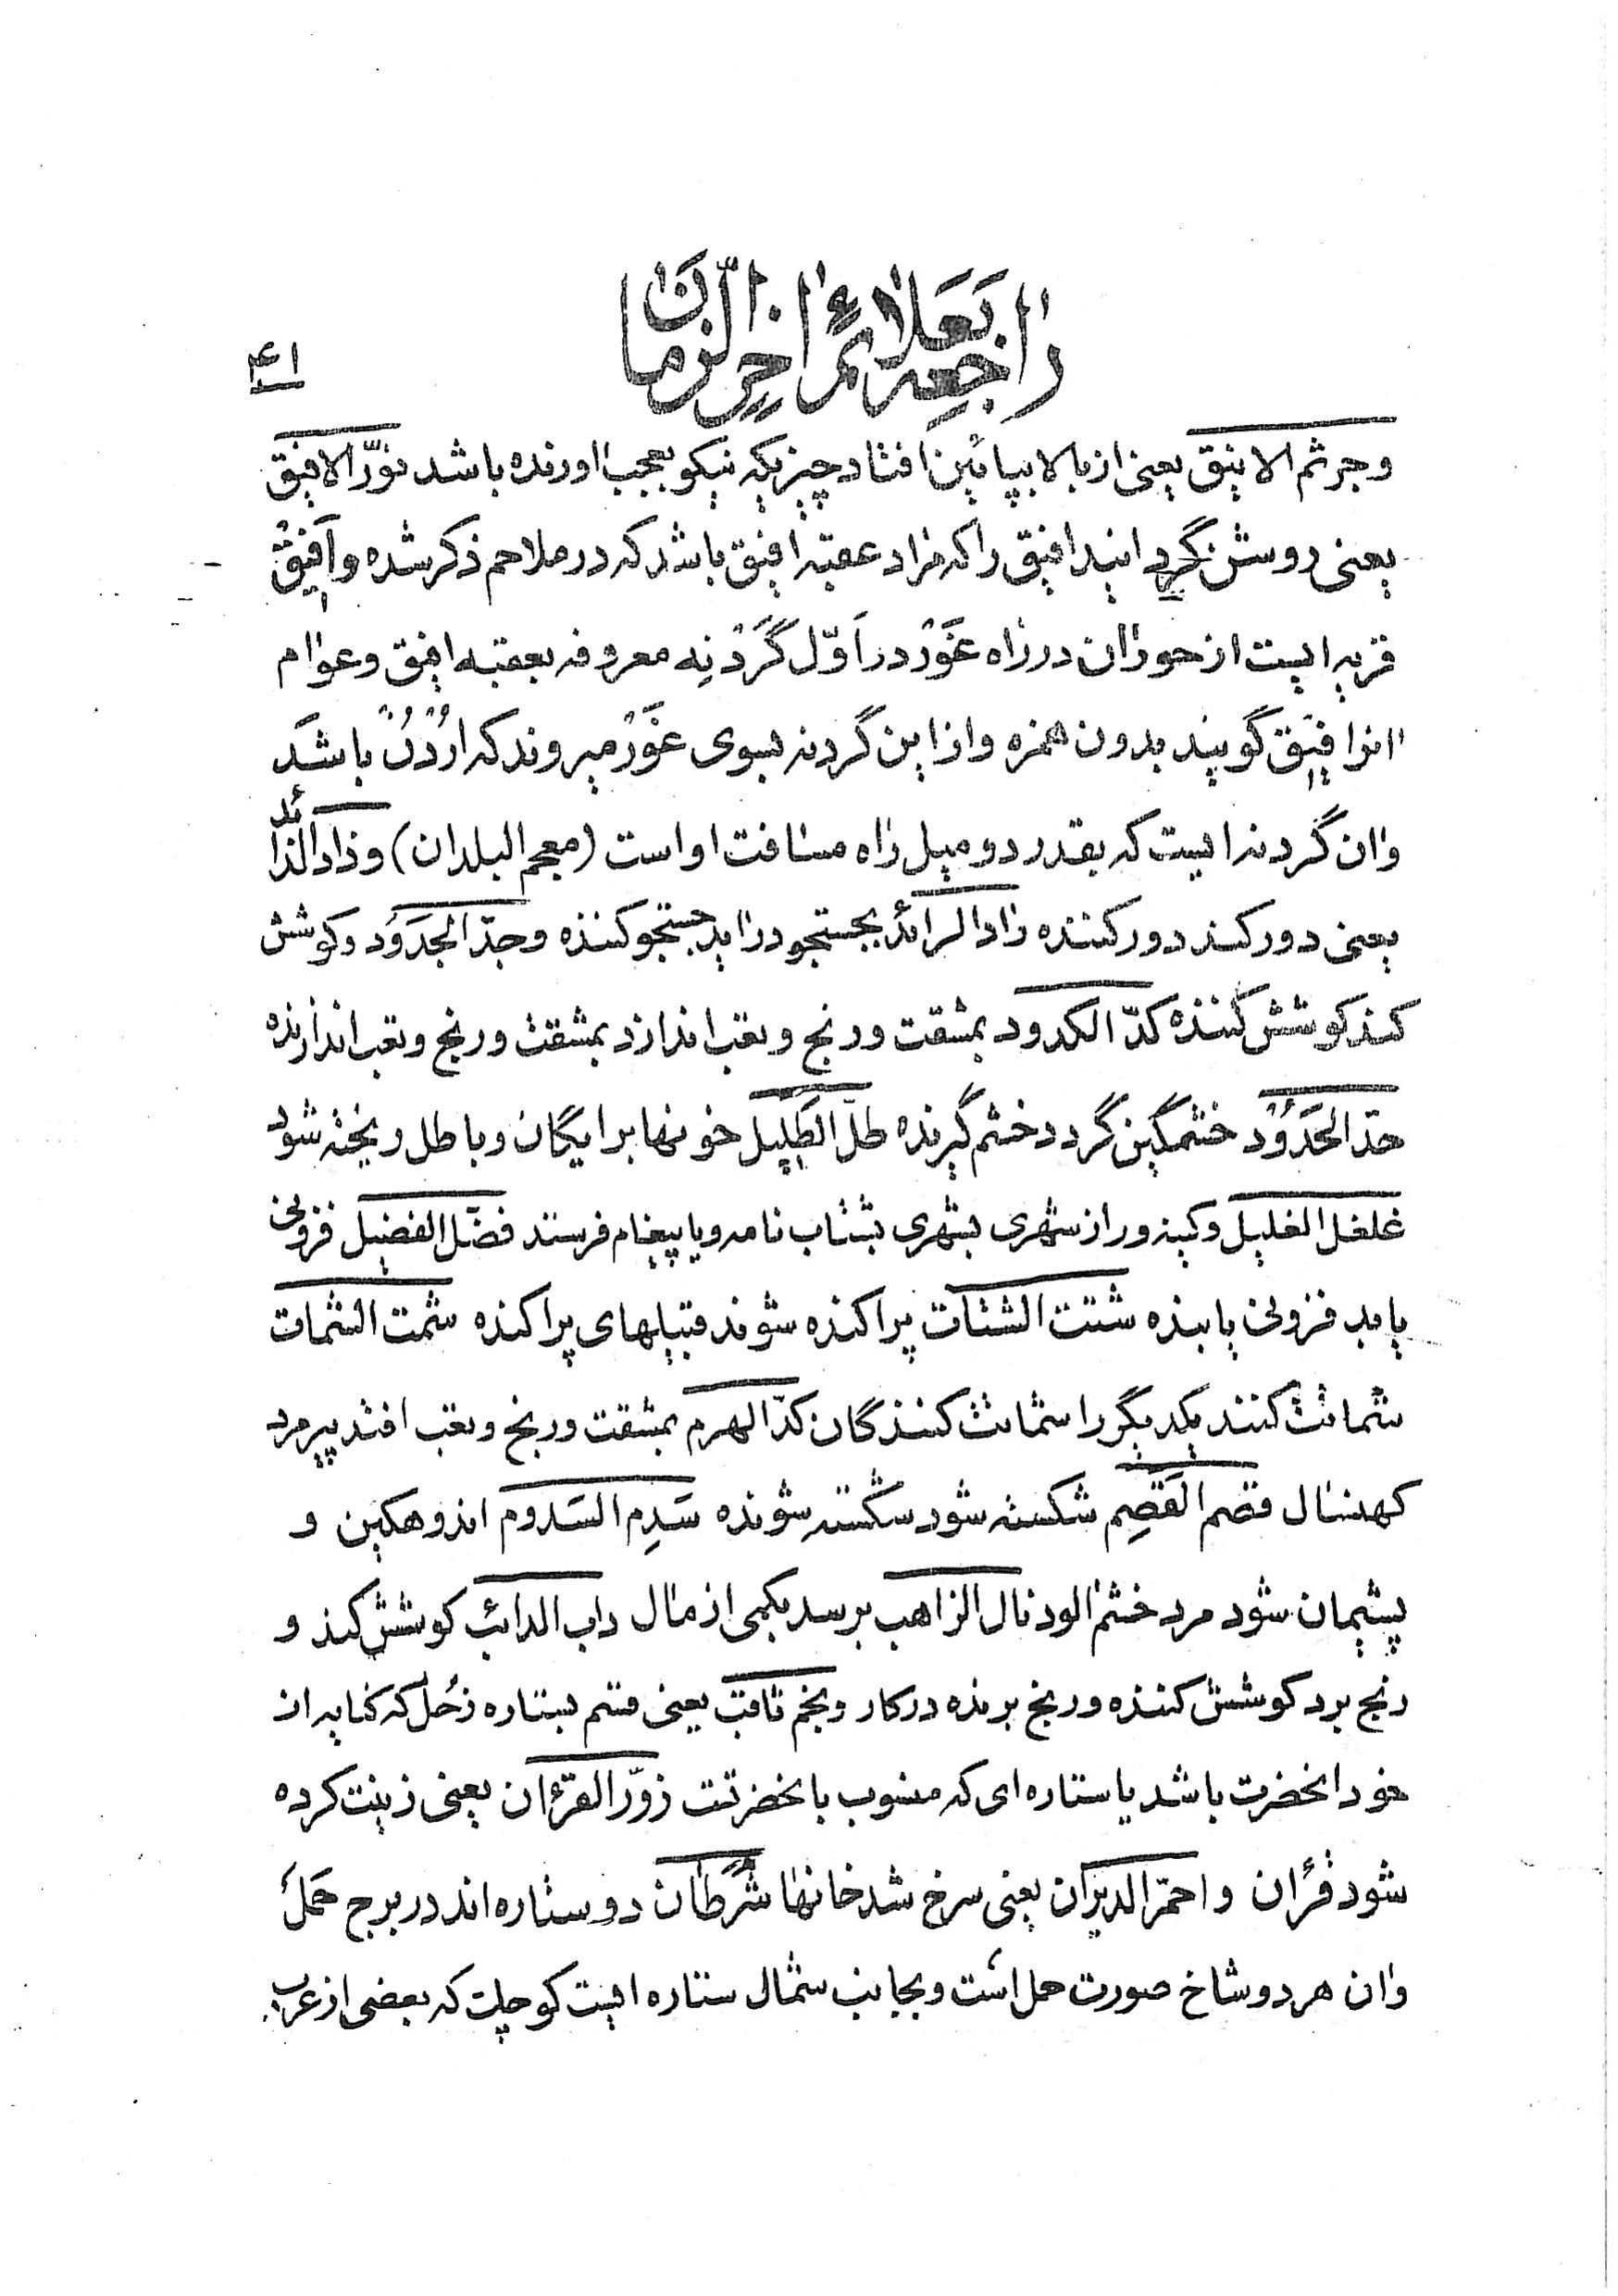 راجعه بعلائم اخر الزمان
۴۱
وجرثم الانیق یعنی از بالا بپائین افتاد چیزیکه نیکو بعجب اورنده باشد نوّر الافیق
یعنی روشن گرداند افیق را که مراد عقبه افیق باشد که در ملاحم ذکر شده و اَفیقُ
قریه ایست از حوران در راه غَوْر در اوّل گَرْدنِه معروفه بعقبه افیق و عوام
انرا فِیَق گویند بدون همزه و از این گردنه بسوی غَوْر میروند که اُرْدُنْ باشد
وان گردنه ایست که بقدر دو میل راه مسافت او است (معجم البلدان) وذاد الذّائد
یعنی دور کند دور کننده راد الرائد بجستجو در اید جستجو کننده وجدّ الجَدَوُد و کوشش
کند کوشش کننده کدّ الکدود بمشقت و رنج و تعب اندازد بمشقت و رنج و تعب اندازنده
حدّ الحَدَوُد خشمگین گردد خشم گیرنده طلّ الطَلِیل خونها برایگان و باطل ریخته شود
غلغل الغلیل و کینه ور از شهری بشهری بشتاب نامه و یا پیغام فرستد فضّل الفضیل فزونی
یابد فزونی یابنده شتت الشتات پراکنده شوند قبیلهای پراکنده شمت الشمات
شماتت کنند یکدیگر را شماتت کنندگان کدّ الهرم بمشقت و رنج و تعب افتد پیر مرد
کهنسال قصم القَصِم شکسته شود شکسته شونده سَدِم السَدوم اندوهکین و
پشیمان شود مرد خشم الود نال الزاهب برسد بکمی از مال داب الدائب کوشش کند و
رنج برد کوشش کننده و رنج برنده در کار ونجم ثاقب یعنی قسم بستاره زُحل که کنایه از
خود انحضرت باشد یا ستاره ای که منسوب بانحضرتست زوّر القرءان یعنی زینت کرده
شود قرءان و احمرّ الدیران یعنی سرخ شد خانها شَرَطان دو ستاره اند در برج حَمَل
وان هر دو شاخ صورت حمل است و بجانب شمال ستاره ایست کوچک که بعضی از عرب